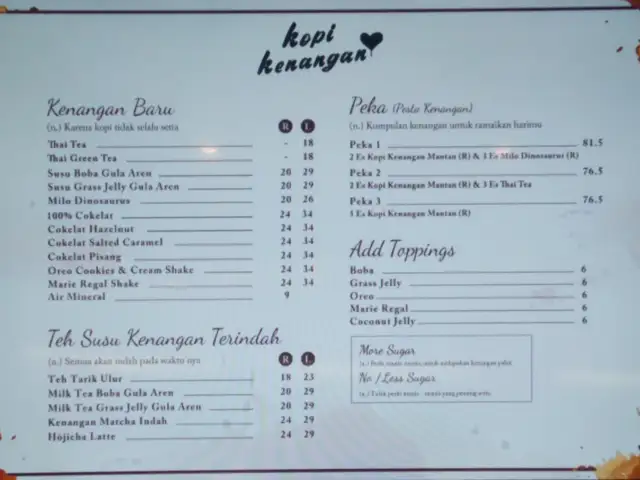 kopi
kenangan
Kenangan Baru
(n.) Karena kopi tidak selalu setia
R L
Thai Tea - 18
Thai Green Tea - 18
Susu Boba Gula Aren 20 29
Susu Grass Jelly Gula Aren 20 29
Milo Dinosaurus 20 26
100% Cokelat 24 34
Cokelat Hazelnut 24 34
Cokelat Salted Caramel 24 34
Cokelat Pisang 24 34
Oreo Cookies & Cream Shake 24 34
Marie Regal Shake 24 34
Air Mineral 9
Teh Susu Kenangan Terindah
(n.) Semua akan indah pada waktu nya
R L
Teh Tarik Ulur 18 23
Milk Tea Boba Gula Aren 20 29
Milk Tea Grass Jelly Gula Aren 20 29
Kenangan Matcha Indah 24 29
Hojicha Latte 24 29
Peka (Pesta Kenangan)
(n.) Kumpulan kenangan untuk ramaikan harimu
Peka 1 81.5
2 Es Kopi Kenangan Mantan (R) & 3 Es Milo Dinosaurus (R)
Peka 2 76.5
2 Es Kopi Kenangan Mantan (R) & 3 Es Thai Tea
Peka 3 76.5
5 Es Kopi Kenangan Mantan (R)
Add Toppings
Boba 6
Grass Jelly 6
Oreo 6
Marie Regal 6
Coconut Jelly 6
More Sugar
(n.) Perlu manis untuk kenangan pahit
No / Less Sugar
(n.) Tidak perlu manis